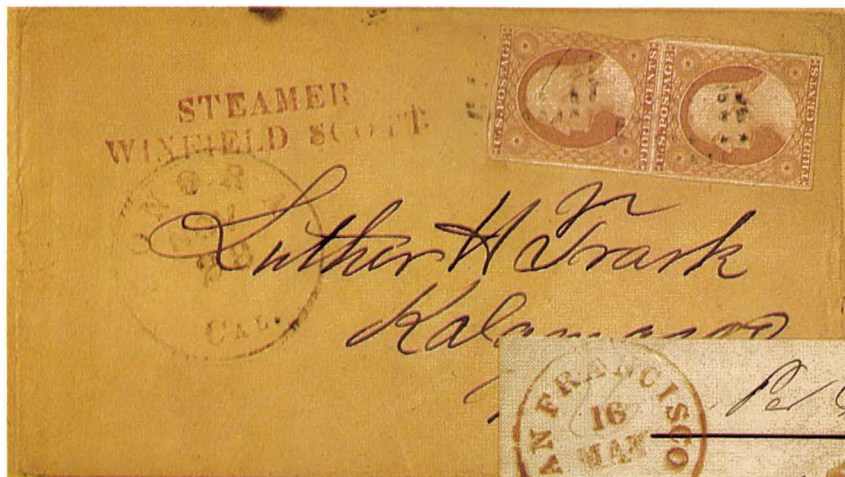 STEAMER
WINFIELD SCOTT
U.S. POSTAGE
THREE CENTS
U.S. POSTAGE
THREE CENTS
CAL.
Luther H Trask
Kalamazoo
AN FRANCISCO
16
MAY
Per